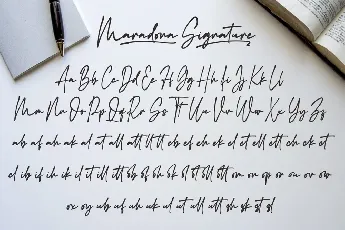 Maradona Signature
Aa Bb Cc Dd Ee Ff Gg Hh Ii Jj Kk Ll
Mm Nn Oo Pp Qq Rr Ss Tt Uu Vv Ww Xx Yy Zz
ab af ah ak al at all att tt eb ef eh ek el et ell ett ch ck ct
cl ib if ih ik il it ill itt ob of oh ok ol ot oll ott on op or ou ov ow
ox oy ub uf uh uk ul ut ull utt sh sk st sl